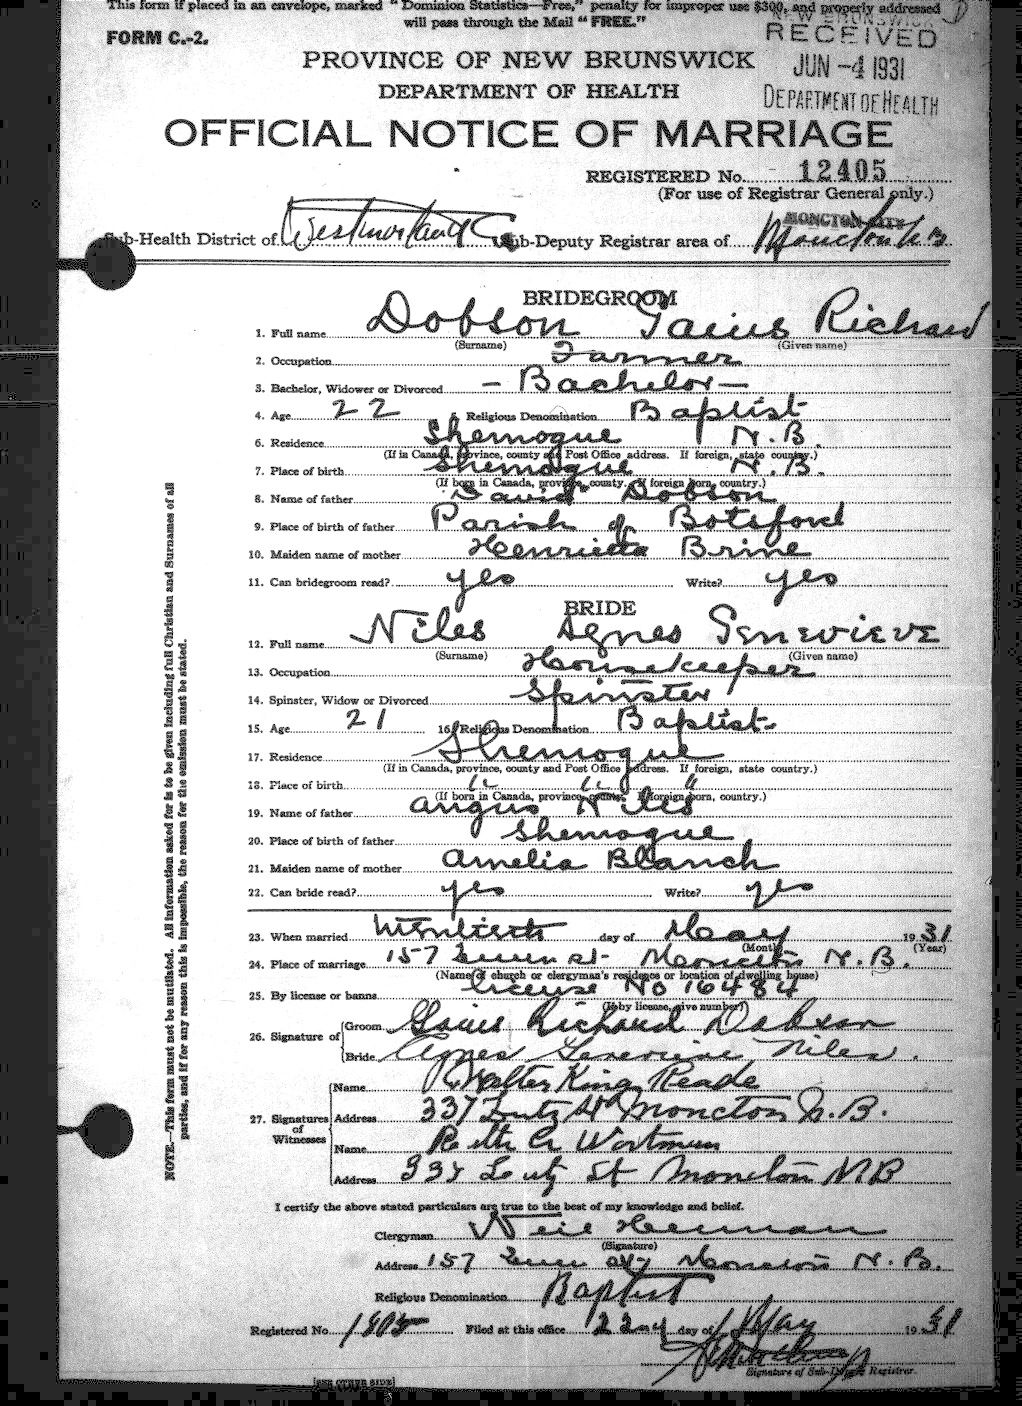 This form if placed in an envelope, marked "Dominion Statistics—Free," penalty for improper use $300, and properly addressed
will pass through the Mail "FREE."
FORM C.-2.
NEW BRUNSWICK
RECEIVED
JUN -4 1931
DEPARTMENT OF HEALTH
PROVINCE OF NEW BRUNSWICK
DEPARTMENT OF HEALTH
OFFICIAL NOTICE OF MARRIAGE
REGISTERED No. 12405
(For use of Registrar General only.)
MONCTON CITY
Sub-Health District of Westmorland Co Sub-Deputy Registrar area of Moncton N.B.
BRIDEGROOM
1. Full name Dobson Gaius Richard
(Surname) (Given name)
2. Occupation Farmer
3. Bachelor, Widower or Divorced — Bachelor —
4. Age 22 5. Religious Denomination Baptist
6. Residence Shemogue N.B.
(If in Canada, province, county and Post Office address. If foreign, state country.)
7. Place of birth Shemogue N.B.
(If born in Canada, province, county. If foreign born, country.)
8. Name of father David Dobson
9. Place of birth of father Parish of Botsford
10. Maiden name of mother Henrietta Brine
11. Can bridegroom read? yes Write? yes
BRIDE
12. Full name Niles Agnes Genevieve
(Surname) (Given name)
13. Occupation Housekeeper
14. Spinster, Widow or Divorced Spinster
15. Age 21 16. Religious Denomination Baptist
17. Residence Shemogue
(If in Canada, province, county and Post Office address. If foreign, state country.)
18. Place of birth " " "
(If born in Canada, province, county. If foreign born, country.)
19. Name of father Angus Niles
20. Place of birth of father Shemogue
21. Maiden name of mother Amelia Blanch
22. Can bride read? yes Write? yes
23. When married day of May 1931
(Month) (Year)
24. Place of marriage 157 St. Moncton N.B.
(Name of church or clergyman's residence or location of dwelling house)
25. By license or banns License No 16484
(If by license, give number)
26. Signature of Groom Gaius Richard Dobson
Bride Agnes Genevieve Niles.
27. Signatures of Witnesses
Name Walter King Reade
Address 337 Lutz St Moncton N.B.
Name Wortman
Address 337 Lutz St Moncton NB
I certify the above stated particulars are true to the best of my knowledge and belief.
Clergyman Neil Herman
(Signature)
Address 157 St Moncton N.B.
Religious Denomination Baptist
Registered No. Filed at this office 22 day of May 1931
Signature of Sub-Deputy Registrar.
[SEE OTHER SIDE]
NOTE.—This form must not be mutilated. All information asked for is to be given including full Christian and Surnames of all
parties, and if for any reason this is impossible, the reason for the emission must be stated.